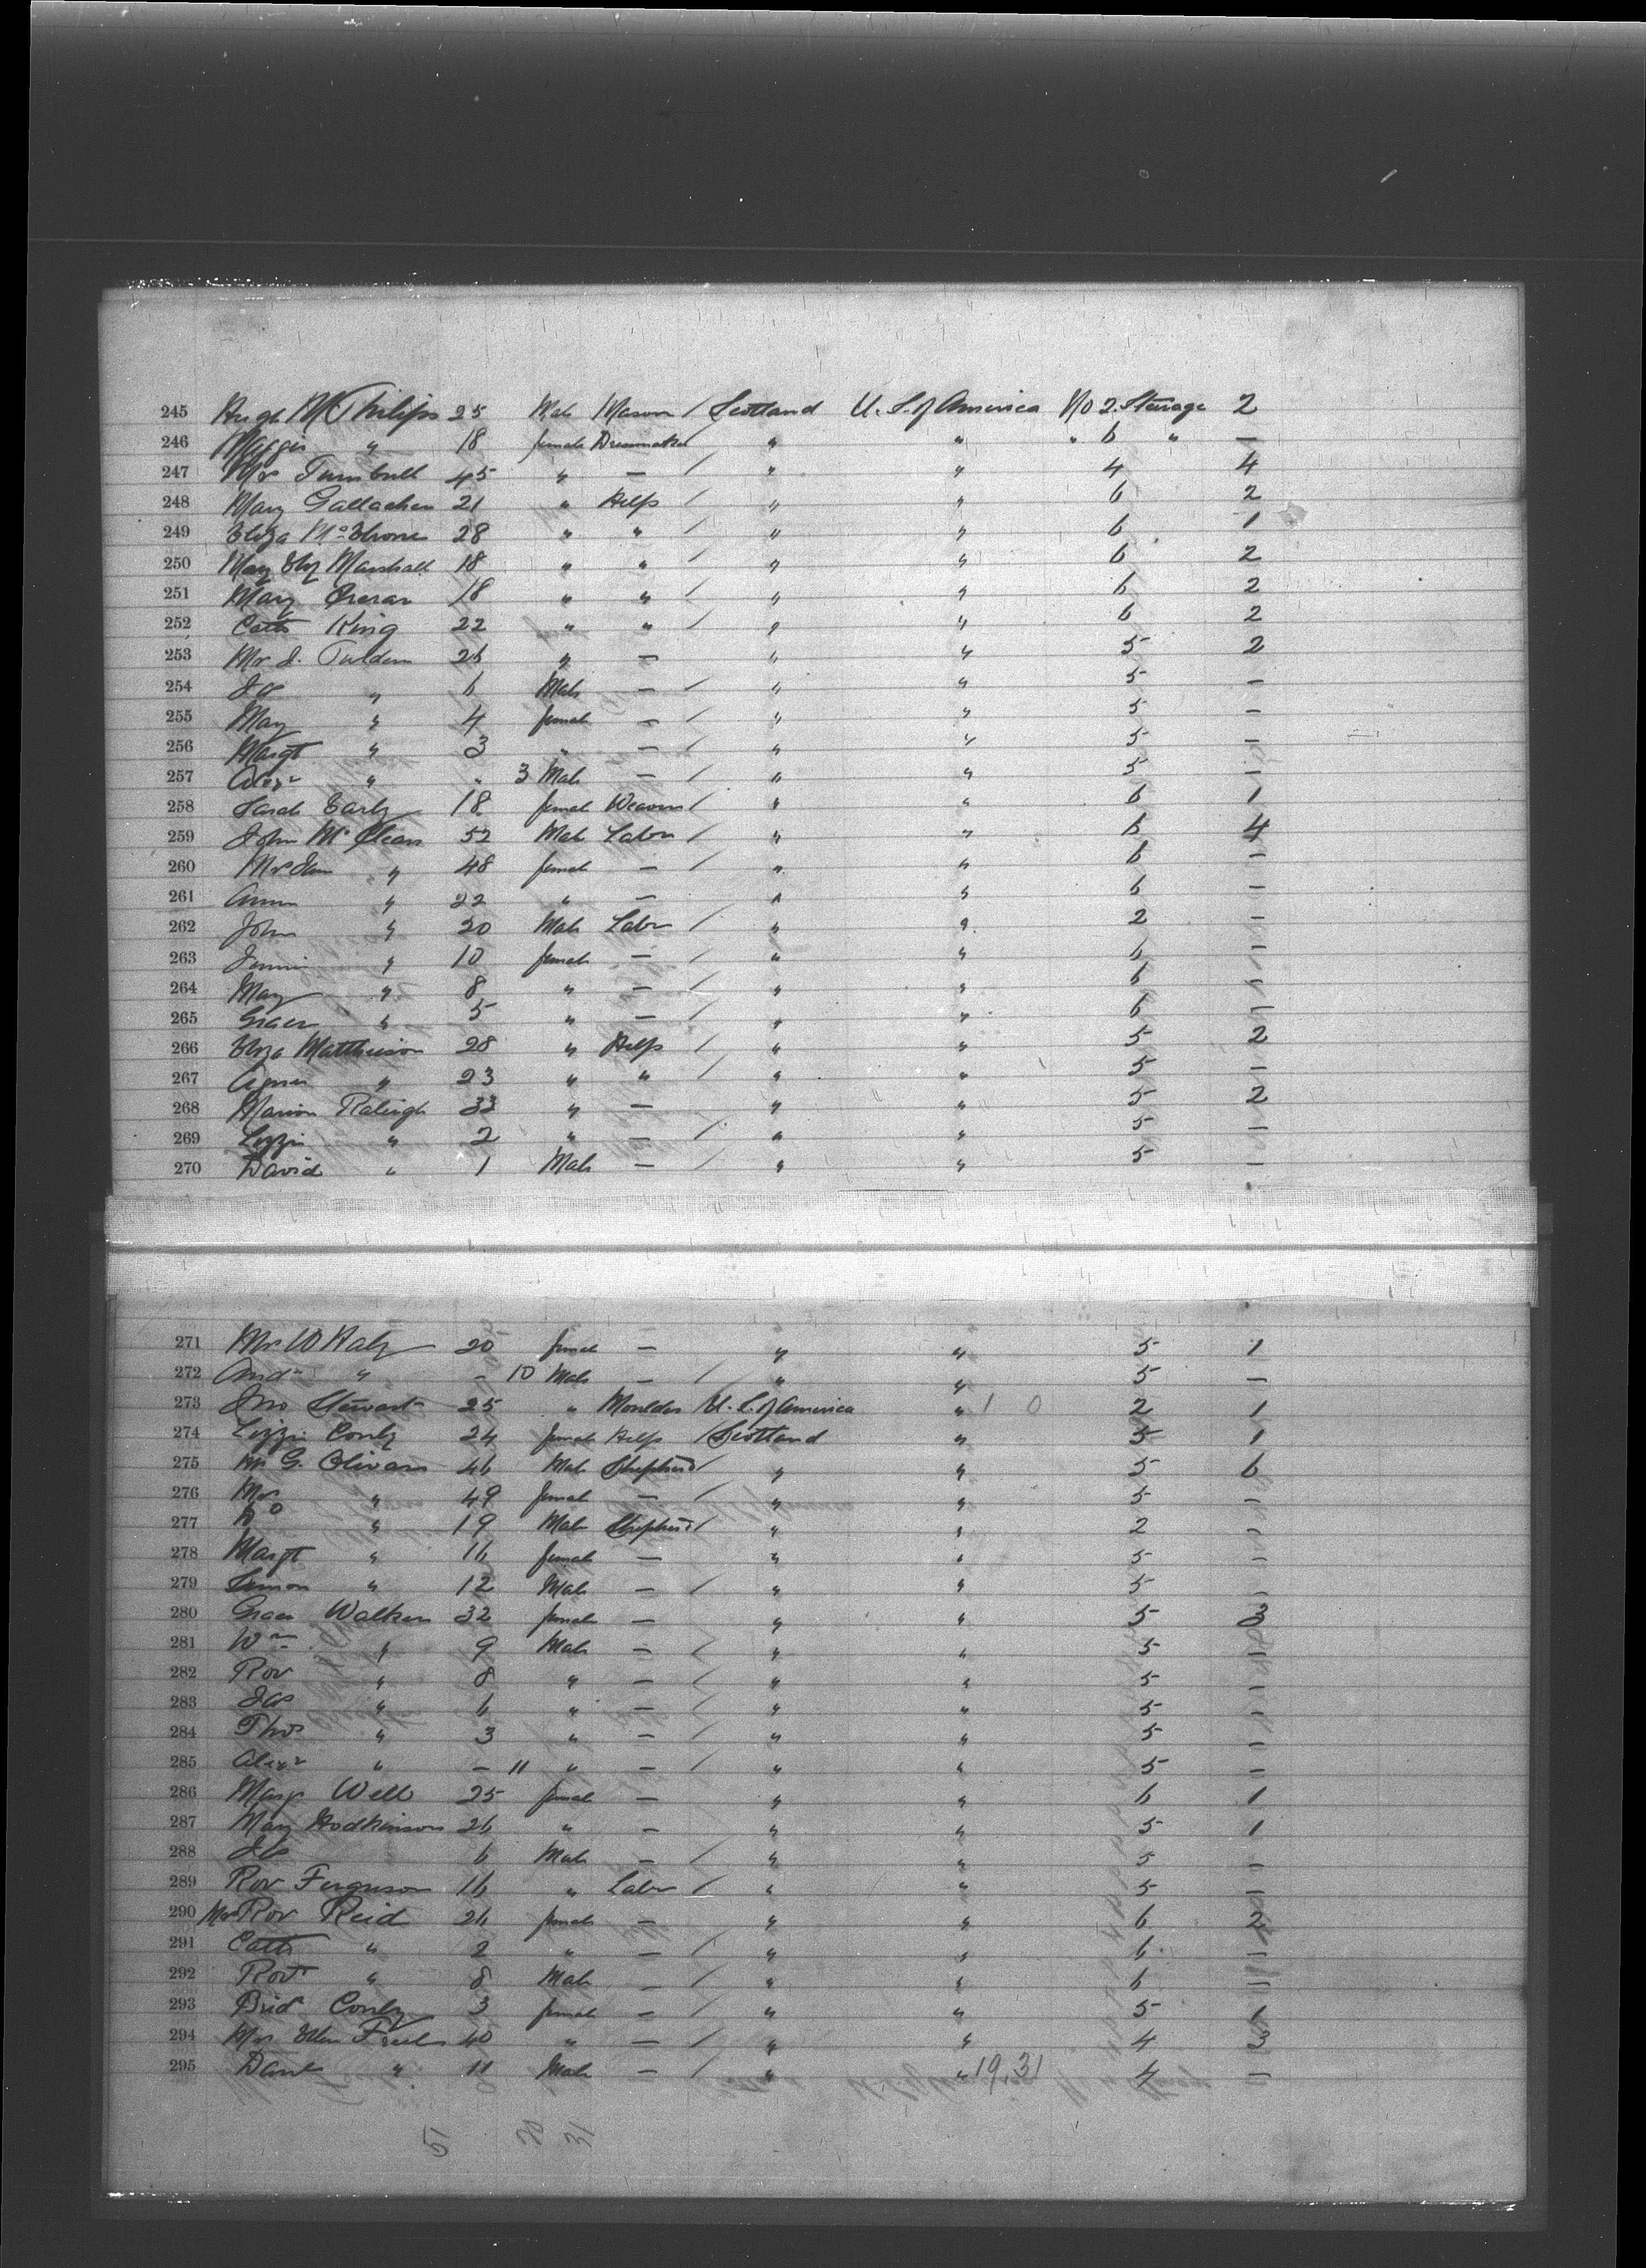 245 Hugh McPhilips 25 Male Mason / Scotland U.S. of America No 2 Steerage 2
246 Maggie " 18 female Dressmaker " " " 6 " —
247 Mrs Turnbull 45 " — / " " 4 4
248 Mary Gallacher 21 " Help / " " 6 2
249 Eliza 28 " " / " " 6 1
250 Mary Eliz Marshall 18 " " / " " 6 2
251 Mary 18 " " / " " 6 2
252 Cath King 22 " " / " " 6 2
253 Mrs J. 26 " — " " 5 2
254 Jas " 6 Male — / " " 5 —
255 Mary " 4 female — / " " 5 —
256 Margt " 3 " — / " " 5 —
257 Alexr " " 3 Male — / " " 5 —
258 Sarah Early 18 female Weaver / " " 6 1
259 John McClean 52 Male Labor / " " 6 4
260 Mrs " 48 female — / " " 6 —
261 Annie " 22 " — " " 6 —
262 John " 20 Male Labor / " " 2 —
263 Jennie " 10 female — / " " 6 —
264 Mary " 8 " — / " " 6 —
265 Grace " 5 " — / " " 6 —
266 Eliza Mathieson 28 " Help / " " 5 2
267 Agnes " 23 " " / " " 5 —
268 Marion Raleigh 33 " — " " 5 2
269 Lizzie " 2 " — / " " 5 —
270 David " 1 Male — / " " 5 —
271 Mrs W Haly 20 female — " " 5 1
272 Andw " — 10 Male — / " " 5 —
273 Jno Stewart 25 " Moulder / U.S. of America " 1 0 2 1
274 Lizzie Conly 24 female Help / Scotland " 5 1
275 Mr G. Olivers 46 Male Shepherd / " " 5 6
276 Mrs " 49 female — / " " 5 —
277 " 19 Male Shepherd / " " 2 —
278 Margt " 16 female — " " 5 —
279 Simon " 12 Male — / " " 5 —
280 Grace Walker 32 female — " " 5 3
281 Wm " 9 Male — / " " 5 —
282 Rob " 8 " — / " " 5 —
283 Jas " 6 " — / " " 5 —
284 Thos " 3 " — / " " 5 —
285 Alexr " — 11 " — / " " 5 —
286 Margt Well 25 female — " " 6 1
287 Mary Hodkinson 26 " — " " 5 1
288 Jas 6 Male — / " " 5 —
289 Rob Ferguson 16 " Labor / " " 5 —
290 Mrs Rob Reid 26 female — " " 6 2
291 Cath " 2 " — / " " 6 —
292 Robt " 8 Male — / " " 6 —
293 Brid Conly 3 female — / " " 5 1
294 Mrs Ellen 40 " — / " " 4 3
295 Danl " 11 Male — / " " 19.31 4 —